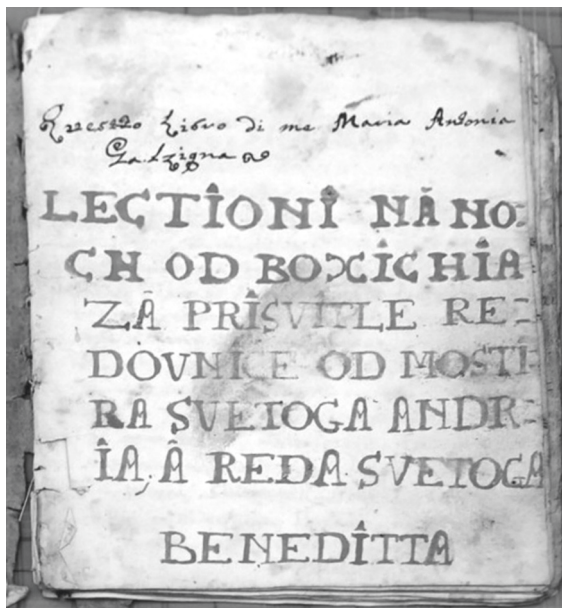 Questto Libro di me Maria Antonia
Galzigna
LECTIONÎ NÂ NO:
CH OD BOXÎCHÎA
ZÂ PRÎSVÎTLE RE:
DOVNÎCE OD MOSTI:
RA SVETOGA ANDR:
ÎA, Â REDA SVETOGA
BENEDÎTTA